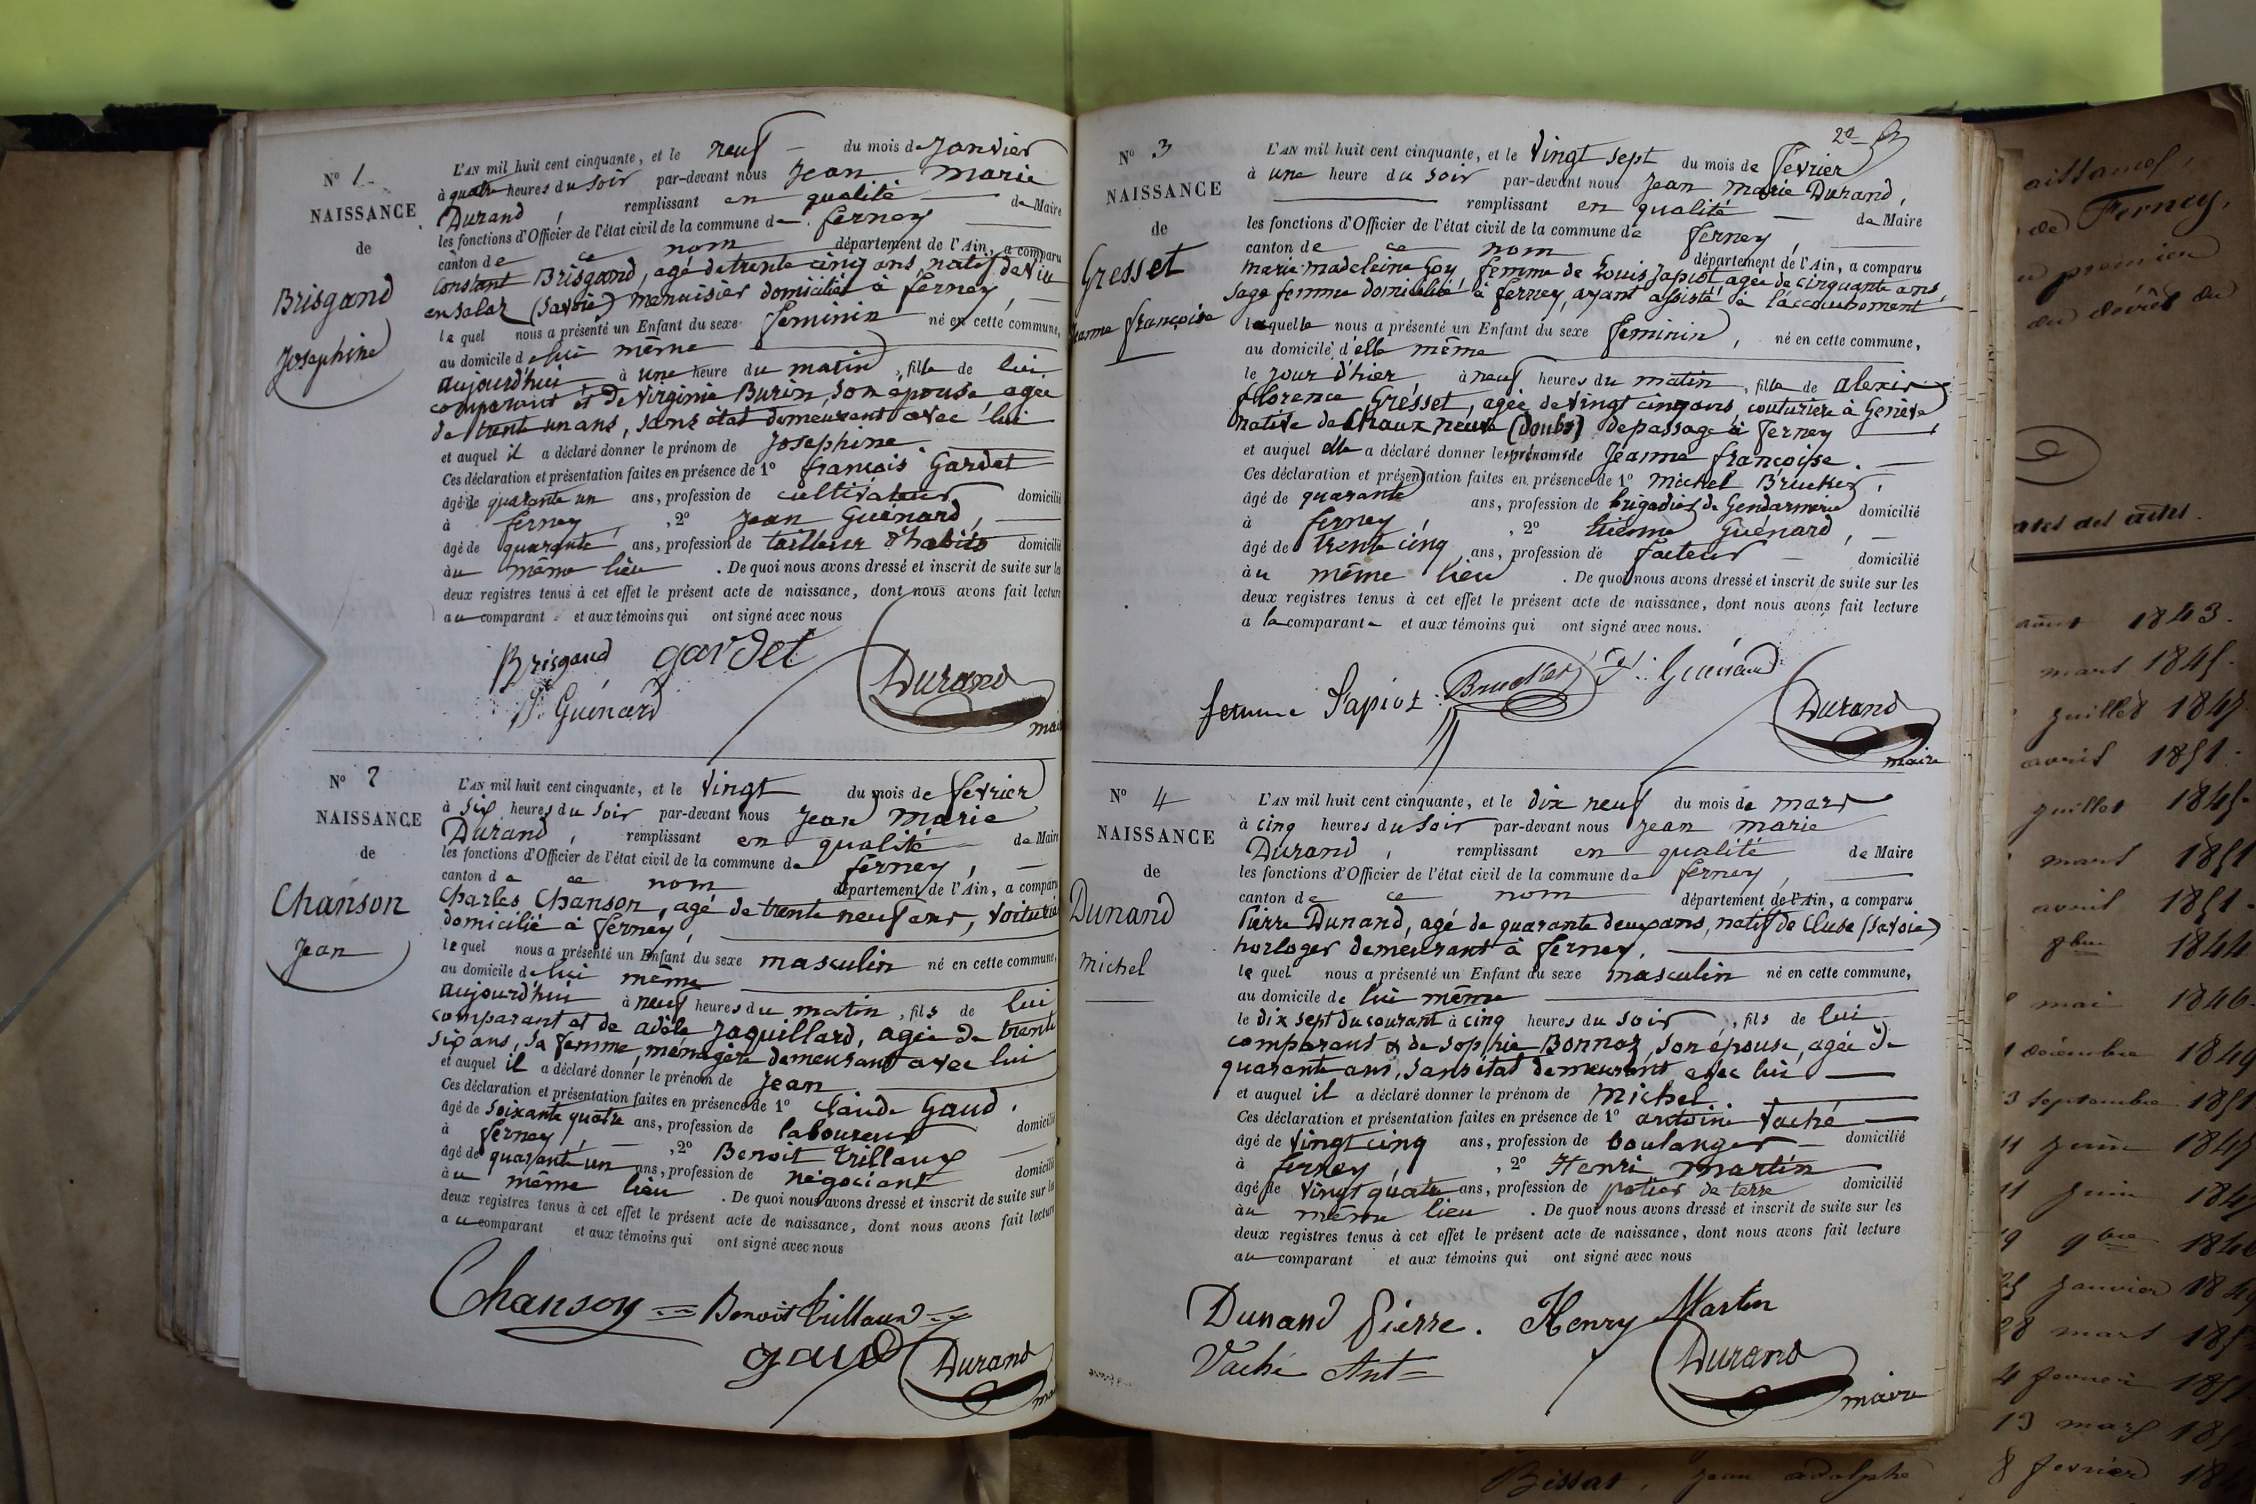 N° 1
NAISSANCE
de
Brisgand
Josephine
L'AN mil huit cent cinquante, et le neuf du mois de Janvier
à quatre heures du soir par-devant nous Jean Marie
Durand, remplissant en qualité de Maire
les fonctions d'Officier de l'état civil de la commune de ferney
canton de ce nom département de l'Ain, a comparu
Constant Brisgand, agé de trente cinq ans, natif de Viu
en Salaz (Savoie) menuisier domicilié à ferney,
le quel nous a présenté un Enfant du sexe feminin né en cette commune,
au domicile de lui même
aujourd'hui à une heure du matin, fille de lui
comparant et de Virginie Burin, son épouse agée
de trente un ans, sans état demeurant avec lui
et auquel il a déclaré donner le prénom de Josephine
Ces déclaration et présentation faites en présence de 1° françois Gardet
âgé de quarante un ans, profession de cultivateur domicilié
à ferney, 2° Jean Guénard,
âgé de quarante ans, profession de tailleur d'habits domicilié
au même lieu. De quoi nous avons dressé et inscrit de suite sur les
deux registres tenus à cet effet le présent acte de naissance, dont nous avons fait lecture
au comparant et aux témoins qui ont signé avec nous
Brisgand gardet
J. Guénard Durand
N° 2
NAISSANCE
de
Chanson
Jean
L'AN mil huit cent cinquante, et le vingt du mois de fevrier
à six heures du soir par-devant nous Jean Marie
Durand, remplissant en qualité de Maire
les fonctions d'Officier de l'état civil de la commune de ferney,
canton de ce nom département de l'Ain, a comparu
Charles Chanson, agé de trente neuf ans, voiturier
domicilié à ferney,
le quel nous a présenté un Enfant du sexe masculin né en cette commune,
au domicile de lui même
aujourd'hui à neuf heures du matin, fils de lui
comparant et de adèle Jaquillard, agée de trente
six ans, sa femme, ménagère demeurant avec lui
et auquel il a déclaré donner le prénom de Jean
Ces déclaration et présentation faites en présence de 1° Claude Gaud.
âgé de soixante quatre ans, profession de laboureur domicilié
à ferney, 2° Benoit Trillaux
âgé de quarante un ans, profession de négociant domicilié
au même lieu. De quoi nous avons dressé et inscrit de suite sur les
deux registres tenus à cet effet le présent acte de naissance, dont nous avons fait lecture
au comparant et aux témoins qui ont signé avec nous
Chanson Benoit
gaud Durand
N° 3
NAISSANCE
de
Gresset
Jeanne françoise
L'AN mil huit cent cinquante, et le vingt sept du mois de fevrier
à une heure du soir par-devant nous Jean Marie Durand,
remplissant en qualité de Maire
les fonctions d'Officier de l'état civil de la commune de ferney
canton de ce nom département de l'Ain, a comparu
Marie Madeleine Goy, femme de Louis Japiot agée de cinquante ans,
sage femme domicilié à ferney, ayant assisté à l'accouchement
laquelle nous a présenté un Enfant du sexe feminin, né en cette commune,
au domicile d'elle même
le jour d'hier à neuf heures du matin, fille de alexis
florence Gresset, agée de vingt cinq ans, couturière à Genève
native de Chaux neuve (doubs) de passage à ferney
et auquel elle a déclaré donner les prénoms de Jeanne françoise.
Ces déclaration et présentation faites en présence de 1° Michel Brucker,
âgé de quarante ans, profession de brigadier de Gendarmerie domicilié
à ferney, 2° Etienne Guénard,
âgé de trente cinq ans, profession de facteur domicilié
au même lieu. De quoi nous avons dressé et inscrit de suite sur les
deux registres tenus à cet effet le présent acte de naissance, dont nous avons fait lecture
a la comparante et aux témoins qui ont signé avec nous.
femme Japiot Brucker Guénard
Durand
maire
N° 4
NAISSANCE
de
Dunand
Michel
L'AN mil huit cent cinquante, et le dix neuf du mois de mars
à cinq heures du soir par-devant nous Jean Marie
Durand, remplissant en qualité de Maire
les fonctions d'Officier de l'état civil de la commune de ferney,
canton de ce nom département de l'Ain, a comparu
Pierre Dunand, agé de quarante deux ans, natif de Cluse (Savoie)
horloger demeurant à ferney,
le quel nous a présenté un Enfant du sexe masculin né en cette commune,
au domicile de lui même
le dix sept du courant à cinq heures du soir, fils de lui
comparant & de Sophie Bonnaz, son épouse, agée de
quarante ans, sans état demeurant avec lui
et auquel il a déclaré donner le prénom de Michel
Ces déclaration et présentation faites en présence de 1° antoine Vaché
âgé de vingt cinq ans, profession de boulanger domicilié
à ferney, 2° Henri Martin
âgé de vingt quatre ans, profession de potier de terre domicilié
au même lieu. De quoi nous avons dressé et inscrit de suite sur les
deux registres tenus à cet effet le présent acte de naissance, dont nous avons fait lecture
au comparant et aux témoins qui ont signé avec nous
Dunand Pierre. Henry Martin
Vaché Ant Durand
maire
de Ferney,
1843.
mars 1845.
juillet
avril 1851
juillet 1845.
mars 1851
avril 1851
8bre 1844
mai 1846
décembre 1849
septembre 1851
juin
juin
9bre
janvier
28 mars
13 mars
8 fevrier
Bissat, Jean adolphe